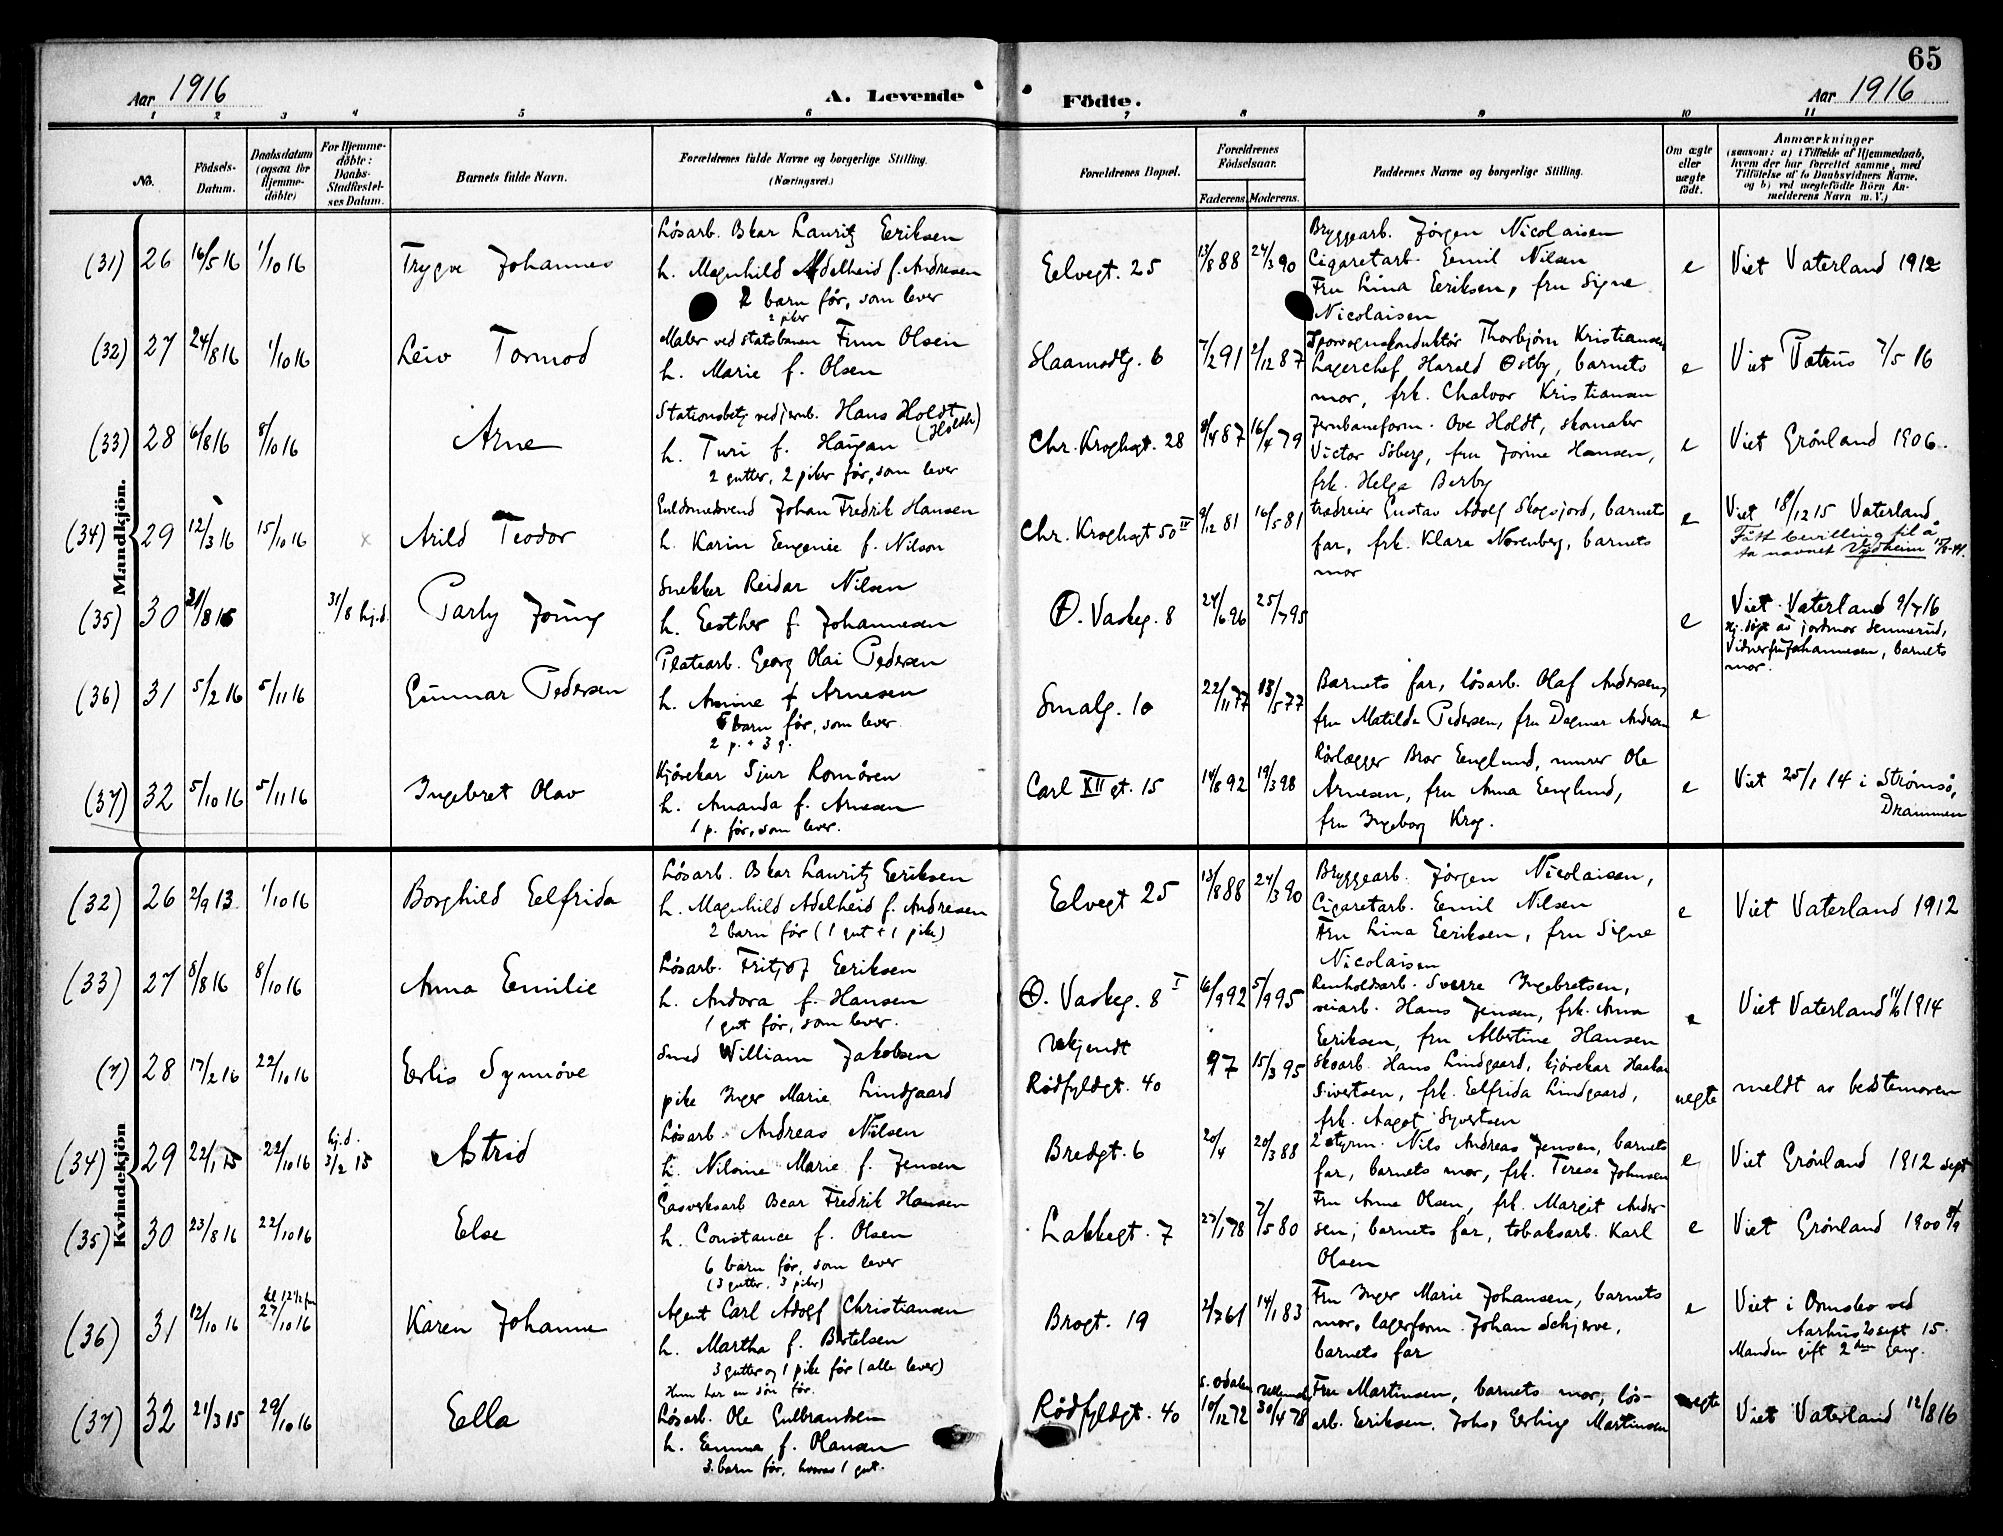 65
Aar 1916
A. Levende
Födte.
Aar 1916
1 2 3 4 5 6 7 8 9 10 11
No.
Födsels-Datum.
Daabsdatum (ogsaa for Hjemme-döbte)
For Hjemme-döbte: Daabs-Stadfæstelses Datum.
Barnets fulde Navn.
Forældrenes fulde Navne og borgerlige Stilling.
(Næringsvei.)
Forældrenes Bopæl.
Forældrenes Födselsaar.
Faderens. Moderens.
Faddernes Navne og borgerlige Stilling.
Om ægte eller uægte födt.
Anmærkninger
(saasom: a) i Tilfælde af Hjemmedaab,
hvem der har forrettet samme, med
Tilföielse af to Daabsvidners Navne,
og b) ved uægtefödte Börn An-
melderens Navn m.V.)
Mandkjön.
(31) 26 16/5 16 1/10 16 Trygve Johannes
Løsarb. Oskar Lauritz Eriksen
h. Magnhild Adelheid f. Andresen
2 barn før, som lever
2 piker
Elvegt. 25
13/8 88 24/3 90
Bryggearb. Jørgen Nicolaisen
Cigaretarb. Emil Nilsen
Fru Lina Eriksen, fru Signe
Nicolaisen
e
Viet Vaterland 1912
(32) 27 24/8 16 1/10 16 Leiv Tormod
Maler ved statsbanen Finn Olsen
h. Marie f. Olsen
Slaamodtg. 6
7/2 91 2/12 87
Sporvognskonduktør Thorbjørn Kristiansen
Lagerchef Harald Østby, barnets
mor, frk. Chalvor Kristiansen
e
Viet Petrus 7/5 16
(33) 28 6/8 16 8/10 16 Arne
Stationsbetj. ved jernb. Hans Holdt
(Holth)
h. Turi f. Haugan
2 gutter, 2 piker før, som lever
Chr. Kroghsgt. 28
8/4 87 16/4 79
Jernbaneform. Ove Holdt, skomaker
Victor Söberg, fru Jorine Hansen,
frk. Helga Berby
e
Viet Grönland 1906.
(34) 29 12/3 16 15/10 16 x Arild Teodor
Guldsmedsvend Johan Fredrik Hansen
h. Karin Eugenie f. Nilson
Chr. Kroghsgt 50 III
9/12 81 16/5 81
Gustav Adolf Skogsjord, barnets
far, frk. Klara Norenberg, barnets
mor
e
Viet 18/12 15 Vaterland
Fått bevilling til å
ta navnet Vydheim
(35) 30 31/8 16 31/8 hj.d. Parly Joung
Snekker Reidar Nilsen
h. Esther f. Johannesen
Ø. Vaskeg. 8
24/6 96 25/7 95
e
Viet Vaterland 9/7 16
Hj. døpt av jordmor Sennerud,
Vidner fru Johannesen, barnets
mor.
(36) 31 5/2 16 5/11 16 Gunnar Pedersen
Platearb. Georg Olai Pedersen
h. Annine f. Arnesen
5 barn før, som lever
2 p. + 3 g.
Smalg. 10
22/11 77 13/5 77
Barnets far, løsarb. Olaf Andersen,
fru Matilde Pedersen, fru Dagmar Andersen
e
(37) 32 5/10 16 5/11 16 Ingebret Olav
Kjørekar Sjur Romøren
h. Amanda f. Arnesen
1 p. før, som lever.
Carl XII gt. 15
14/8 92 19/3 98
Rørlægger Bror Englund, murer Ole
Arnesen, fru Anna Englund,
fru Ingeborg Krog.
e
Viet 25/1 14 i Strömsö,
Drammen
Kvindekjön
(32) 26 2/9 13. 1/10 16 Borghild Elfrida
Løsarb. Oskar Lauritz Eriksen
h. Magnhild Adelheid f. Andresen
2 barn før (1 gut + 1 pike)
Elvegt 25
13/8 88 24/3 90
Bryggearb. Jørgen Nicolaisen,
Cigaretarb. Emil Nilsen
Fru Lina Eriksen, fru Signe
Nicolaisen
e
Viet Vaterland 1912
(33) 27 8/8 16 8/10 16 Anna Emilie
Løsarb. Fritjof Eriksen
h. Andora f. Hansen
1 gut før, som lever.
Ø. Vaskeg. 8 I
16/9 92 5/9 95
Renholdsarb. Sverre Ingebretsen,
veiarb. Hans Jensen, frk. Anna
Eriksen, fru Albertine Hansen
e
Viet Vaterland 1914
(7) 28 17/2 16 22/10 16 Erlis Synnöve
Smed William Jakobsen
pike Inger Marie Lindgaard
Ukjendt
Rødfyldgt. 40
97 15/3 95
Skoarb. Hans Lindgaard, kjørekar Haakon
Sivertsen, frk. Elfrida Lindgaard,
frk. Aagot Syvertsen
uegte
meldt av bestemoren
(34) 29 22/1 15 22/10 16 hj.d. 3/2 15 Astrid
Løsarb. Andreas Nilsen
h. Nilsine Marie f. Jensen
Bredgt. 6
20/4 20/3 88
2 styrm. Nils Andreas Jensen, barnets
far, barnets mor, frk. Terese Johnsen
e
Viet Grönland 1912 sept
(35) 30 23/8 16 22/10 16 Else
Gasverksarb Oscar Fredrik Hansen
h. Constance f. Olsen
6 barn før, som lever
(3 gutter, 3 piker)
Lakkegt. 7
27/1 78 7/5 80
Fru Anna Olsen, frk. Margit Ander-
sen, barnets far, tobaksarb. Karl
Olsen
e
Viet Grönland 1900 8/9
(36) 31 12/10 16 kl 12 1/2 fm 27/10 16 Karen Johanne
Agent Carl Adolf Christiansen
h. Martha f. Bertelsen
3 gutter og 1 pike før (alle lever)
Brogt. 19
2/7 61 14/1 83
Fru Inger Marie Johansen, barnets
mor, lagerform. Johan Schjerve,
barnets far
e
Viet i Ormslev ved
Aarhus 20 sept 15.
Manden gift 2den gang.
(37) 32 21/3 15 29/10 16 Ella
Hun har en søn før.
Løsarb. Ole Gulbrandsen
h. Emma f. Olausen
3 barn før, hvorav 1 gut.
Rødfyldgt. 40
S. Odalen 10/12 72 30/4 78
Fru Martinsen, barnets mor, løs-
arb. Eriksen, Johs, Erling Martinsen
uegte
Viet Vaterland 12/8 16